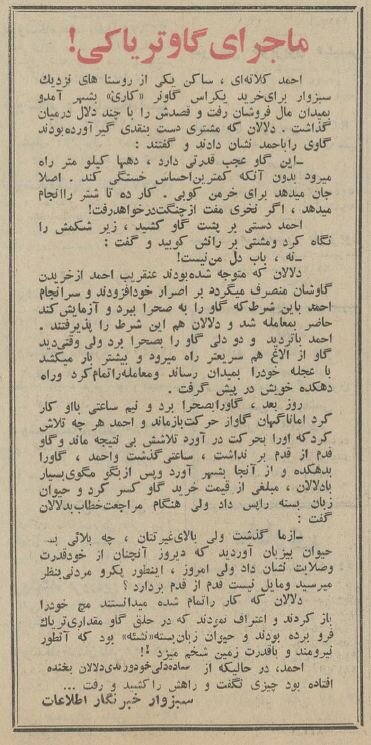 ماجرای گاو تریاکی!
احمد کلانه‌ای ، ساکن یکی از روستا های نزدیك
سبزوار برای‌خرید یکراس گاونر «کاری» بشهر آمدو
بمیدان مال فروشان رفت و قصدش را با چند دلال درمیان
گذاشت . دلالان که مشتری دست بنقدی گیرآورده‌بودند
گاوی راباحمد نشان دادند و گفتند :
ـ این گاو عجب قدرتی دارد ، دهها کیلو متر راه
میرود بدون آنکه کمترین‌احساس خستگی کند . اصلا
جان میدهد برای خرمن کوبی . کار ده تا شتر راانجام
میدهد ، اگر نخری مفت ازچنگت‌درخواهدرفت!
احمد دستی بر پشت گاو کشید ، زیر شکمش را
نگاه کرد ومشتی بر رانش کوبید و گفت :
ـ نه ، باب دل من‌نیست!
دلالان که متوجه شده‌بودند عنقریب احمد ازخریدن
گاوشان منصرف میگردد بر اصرار خودافزودند و سرانجام
احمد باین شرط‌که گاو را به صحرا ببرد و آزمایش‌کند
حاضر بمعامله شد و دلالان هم این شرط را پذیرفتند .
احمد باتردید و دو دلی گاو را بصحرا برد ولی وقتی‌دید
گاو از الاغ هم سریعتر راه میرود و بیشتر بار میکشد
با عجله خودرا بمیدان رساند ومعامله‌راتمام‌کرد وراه
دهکده خویش در پیش گرفت .
روز بعد ، گاورابصحرا برد و نیم ساعتی بااو کار
کرد اماناگهان گاواز حرکت‌بازماند و احمد هر چه تلاش
کردکه اورا بحرکت در آورد تلاشش بی نتیجه ماند وگاو
قدم از قدم بر نداشت ، ساعتی‌گذشت واحمد ، گاورا
بدهکده و از آنجا بشهر آورد وپس ازبگو مگوی‌بسیار
بادلالان ، مبلغی از قیمت خرید گاو کسر کرد و حیوان
زبان بسته راپس داد ولی هنگام مراجعت‌خطاب‌بدلالان
گفت :
ـ ازما گذشت ولی بالای‌غیرتتان ، چه بلائی بـ
حیوان بیزبان آوردید که دیروز آنچنان از خودقدرت
وصلابت نشان داد ولی امروز ، اینطور یکرو مردنی‌بنظر
میرسید ومایل نیست قدم از قدم بردارد ؟
دلالان که کار راتمام شده میدانستند مچ خودرا
باز کردند و اعتراف نمودند که در حلق گاو مقداری‌تریاك
فرو برده بودند و حیوان زبان‌بسته«نشئه» بود که آنطور
نیرومند و باقدرت زمین شخم میزد !!
احمد، در حالیکه از ساده‌دلی‌خودورندی‌دلالان بخنده
افتاده بود چیزی نگفت و راهش راکشید و رفت ...
سبزوار خبرنگار اطلاعات